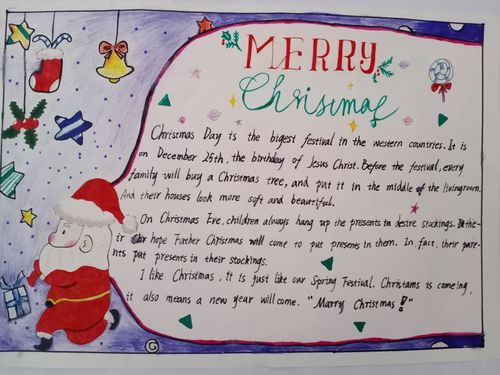 MERRY
Christmas
Christmas Day is the bigest festival in the western countries. It is
on December 25th, the birthday of Jesus Christ. Before the festival, every
family will buy a Christmas tree, and put it in the middle of the livingroom.
And their houses look more soft and beautiful.
On Christmas Eve, children always hang up the presents in desire stockings. In the-
ir hope Father Christmas will come to put presents in them. In fact, their pare-
nts put presents in their stockings.
I like Christmas, It is just like our Spring Festival. Christams is comeing,
it also means a new year will come. "Marry Christmas!"